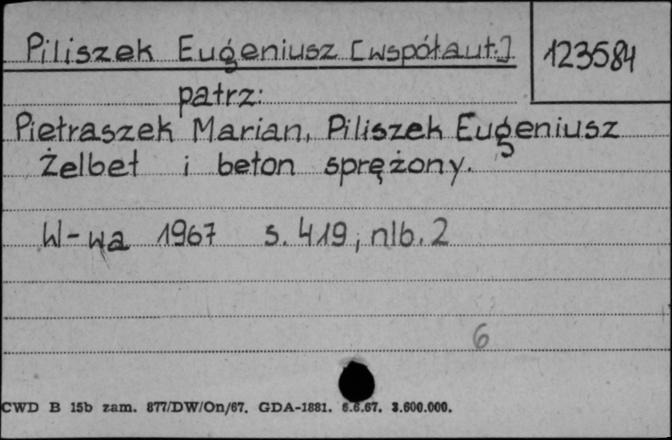 Piliszek Eugeniusz [współaut.]
123584
patrz:
Pietraszek Marian, Piliszek Eugeniusz
Żelbet i beton sprężony.
W-wa 1967 s. 419, nlb. 2
6
CWD B 15b zam. 877/DW/On/67. GDA-1881. 6.6.67. 3.600.000.